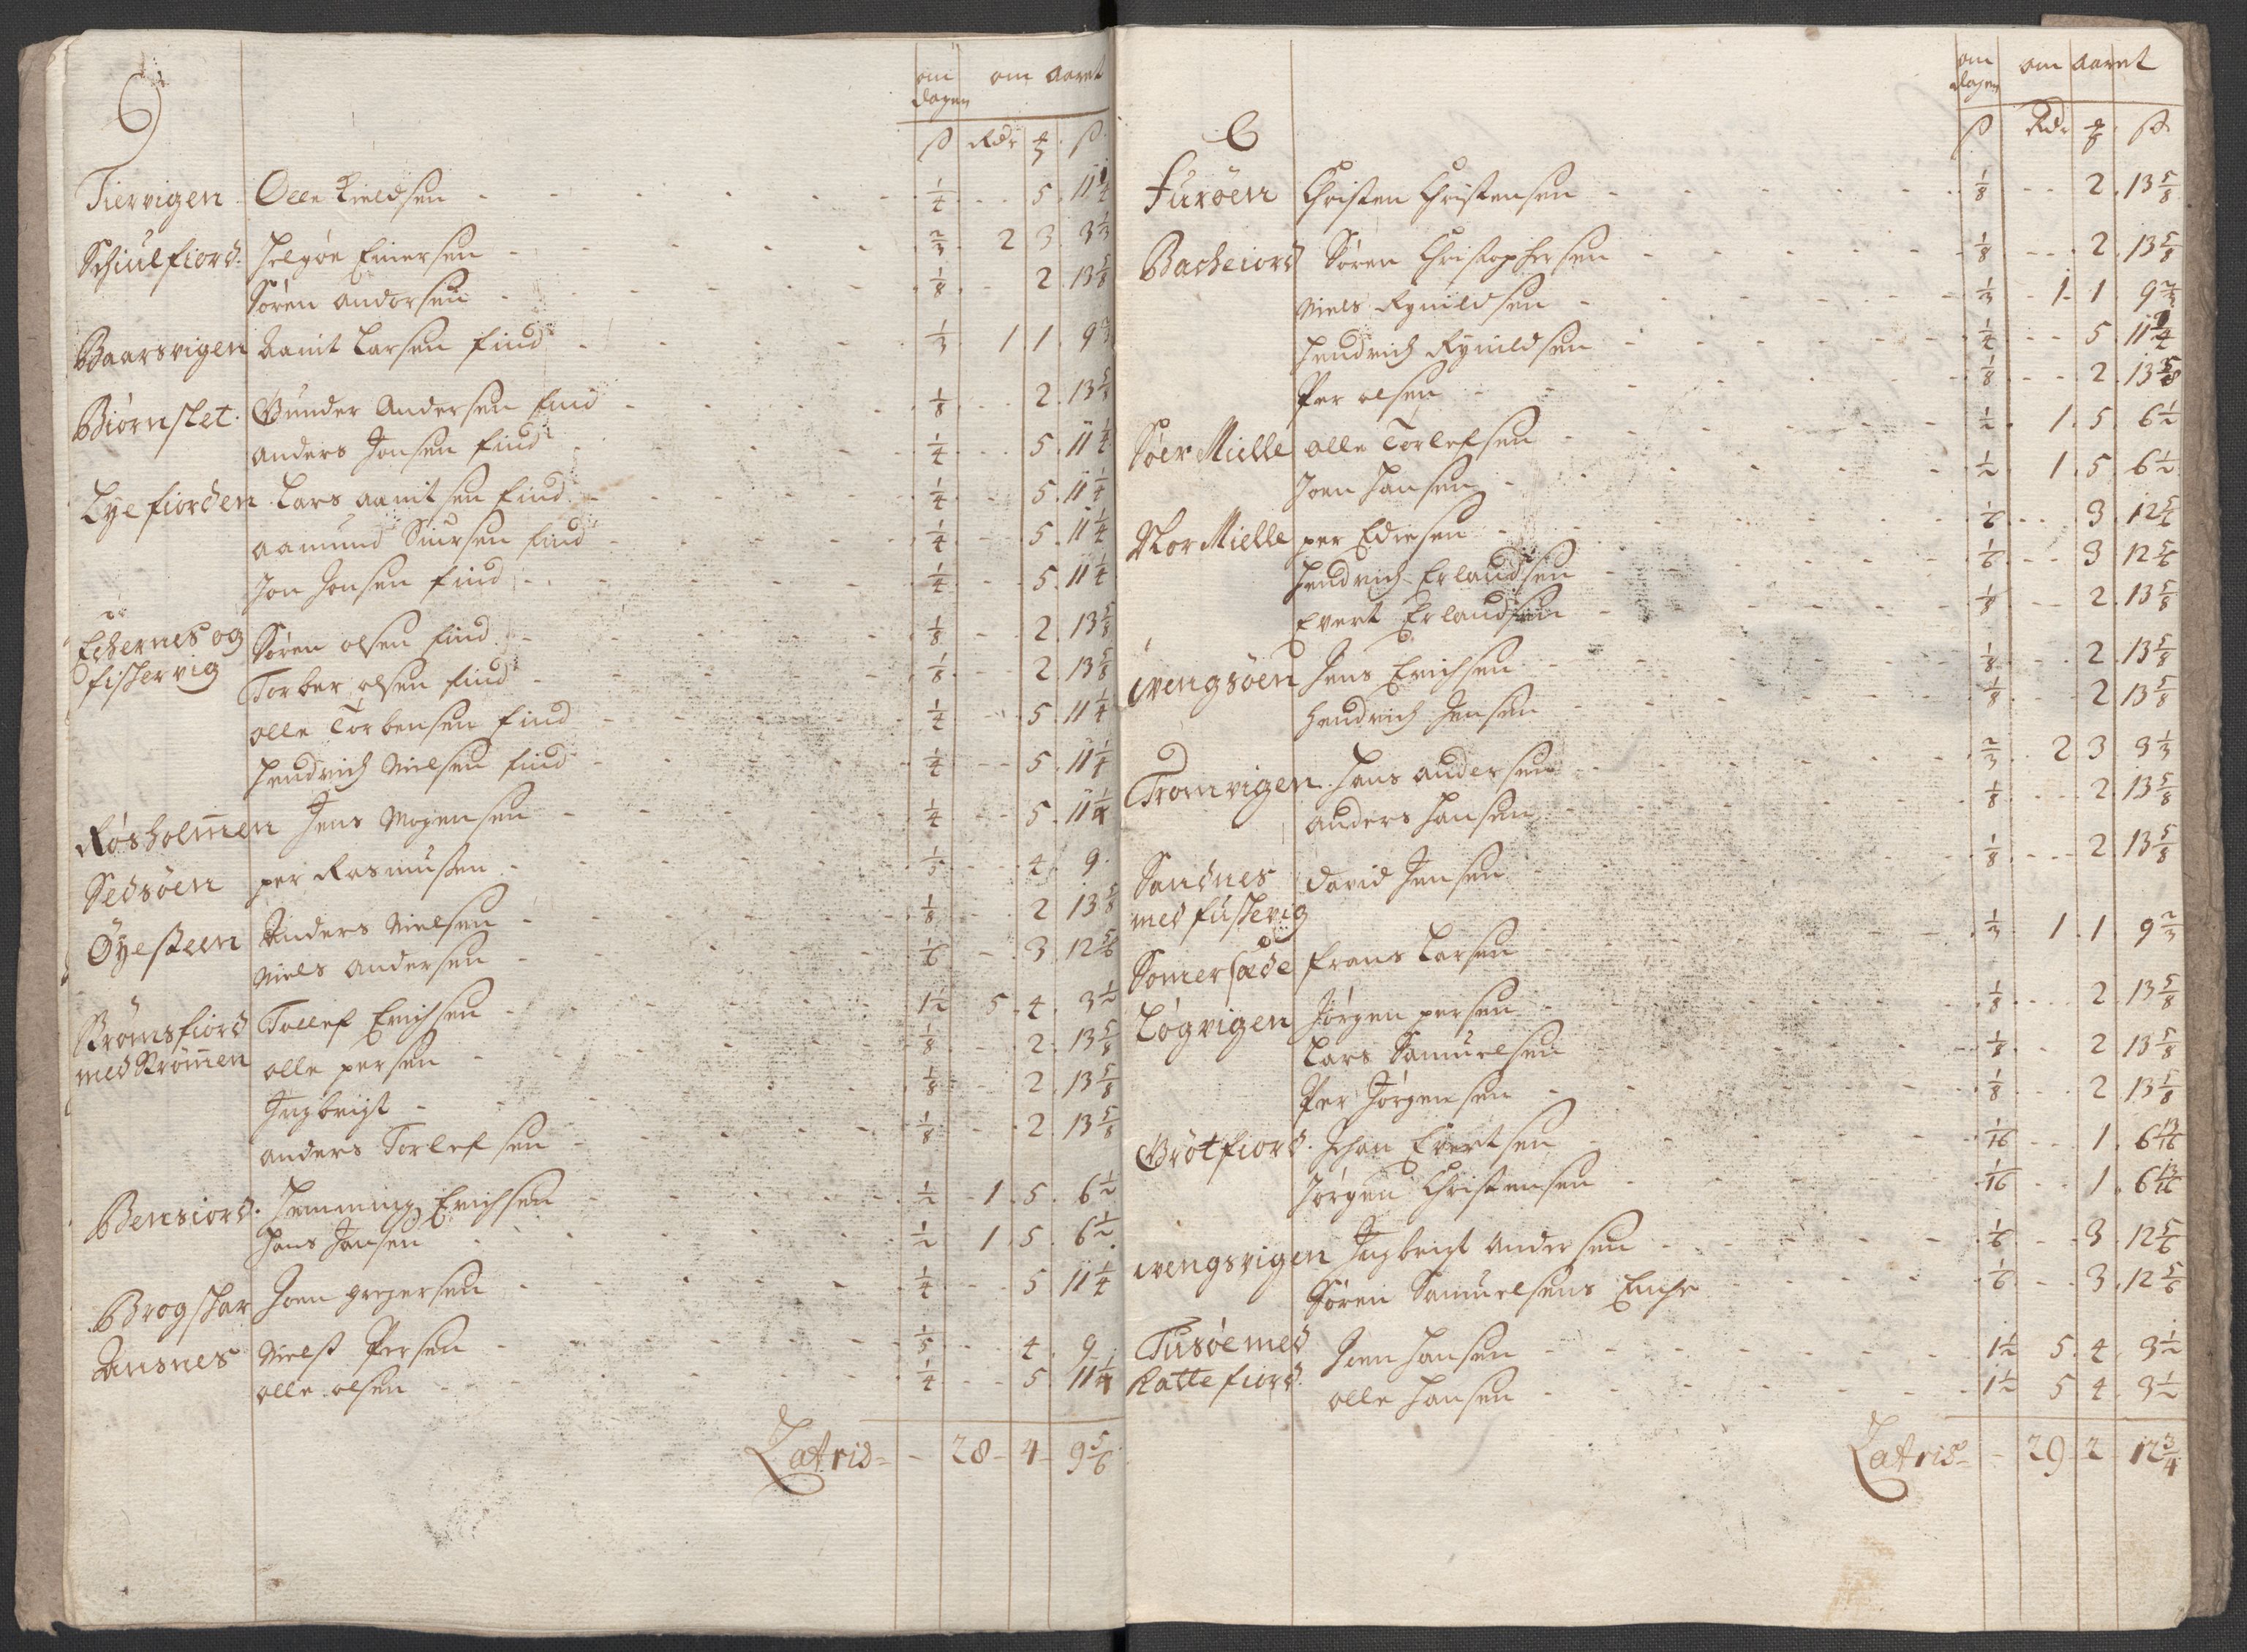 6
om dagen | om aaret
ß | Rdr | ¥ | ß
Tiervigen Olle Kieldsen - ¼ - 5. 11¼
Schiulfiord. Helgøe Einersen - ⅔. 2 3. 3⅓
Søren andersen - ⅛ - 2. 13⅝
Baarsvigen Aamit Larsen find - ⅓ 1 1. 9⅔
Biørnsket. Gunder Andersen find - ⅛ - 2. 13⅝
anders Jonsen find - ¼ - 5. 11¼
Lyefiorden Lars aamitsen find - ¼ - 5. 11¼
aamund Siursen find - ¼ - 5. 11¼
Jon Jonsen find - ¼ - 5. 11¼
Echernes og Søren olsen find - ⅛ - 2. 13⅝
fiskervig Torber olsen find - ⅛ - 2. 13⅝
olle Torbensen find - ¼ - 5. 11¼
Hendrich Nielsen find - ¼ - 5. 11¼
Røsholmen Jens Mogensen - ¼ - 5. 11¼
Sedsøen per Rasmusen - ⅕ - 4. 9.
Øyesteen Anders Nielsen - ⅛ - 2 13⅝
Niels andersen - ⅙ - 3. 12⅚
Strømsfiord Tollef Erichsen - 1½ 5. 4. 3½
med Strømen olle persen - ⅛ - 2. 13⅝
Ingbrigt - ⅛ - 2. 13⅝
anders Torlefsen - ⅛ - 2. 13⅝
Bensiord. Hemming Erichsen - ½ - 1. 5. 6½
Hans Jansen - ½ 1. 5. 6½
Brogskar Joen gregersen - ¼ - 5 11¼
Ansnes Nielß Persen - ⅕ - 4. 9
olle olsen - ¼ - 5. 11¼
Latrid - 28 - 4 - 9⅚
6
om dagen | om aaret
ß | Rdr | ¥ | ß
Furøen Christen Christensen - ⅛ - 2. 13⅝
Bacheiord Søren Christophersen - ⅛ - 2. 13⅝
Niels Rynildsen - ⅓ - 1. 1. 9⅔
Hendrich Rynildsen - ¼ - 5. 11¼
Per olsen - ⅛ - 2. 13⅝
Søer Mielle olle Torlefsen - ½. 1. 5. 6½
Joen Hansen - ½ 1. 5 6½
Nor Mielle per Ediesen - ⅙ - 3. 12⅚
Hendrich Erlandsen - ⅙ - 3 12⅚
Evert Erlandsen - ⅛ - 2. 13⅝
wengsøen Jens Erichsen - ⅛ - 2. 13⅝
Hendrich Jensen - ⅛ - 2 13⅝
Tromvigen Hans andersen - ⅔ 2 3 3⅓
anders Hansen - ⅛ - 2. 13⅝
Sandnes David Jensen - ⅛ - 2. 13⅝
med fuskevig
Somersæde frans Larsen - ⅓ 1. 1. 9⅔
Løgvigen Jørgen persen - ⅛ - 2. 13⅝
Lars Samuelsen - ⅛ - 2 13⅝
Per Jørgensen - ⅛ - 2 13⅝
Grøtfiord. Johan Evertsen - 1/16 - 1. 6 13/16
Jørgen Christensen - 1/16 - 1. 6 13/16
wengsvigen Ingbrigt andersen - ⅙ - 3. 12⅚
Søren Samuelsens Enche - ⅙ - 3. 12⅚
Tusøe med Joen Hansen - 1½ 5. 4. 3½
Kattefiord. olle Hansen - 1½ 5 4. 3½
Latrid - 29 - 2 - 12¾